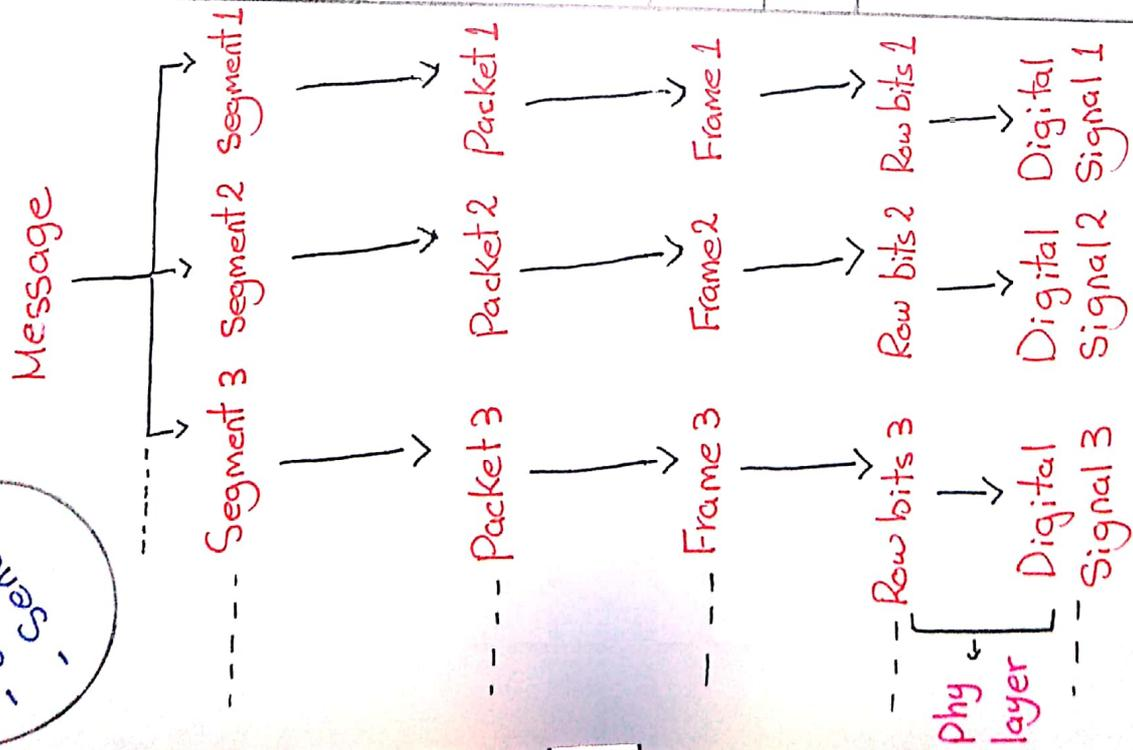 Message
Segment 3 Segment 2 Segment 1
Packet 3 Packet 2 Packet 1
Frame 3 Frame 2 Frame 1
Row bits 3 Row bits 2 Row bits 1
Digital Digital Digital
Signal 3 Signal 2 Signal 1
Phy
layer